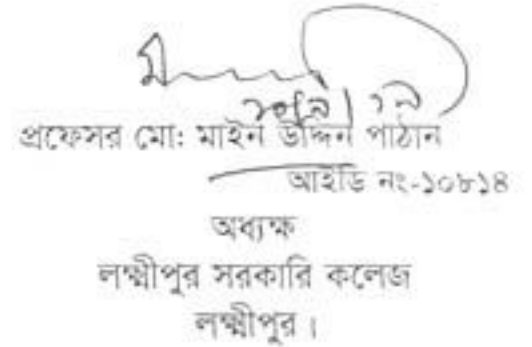 প্রফেসর মো: মাইন উদ্দিন পাঠান
আইডি নং-১০৮১৪
অধ্যক্ষ
লক্ষ্মীপুর সরকারি কলেজ
লক্ষ্মীপুর।